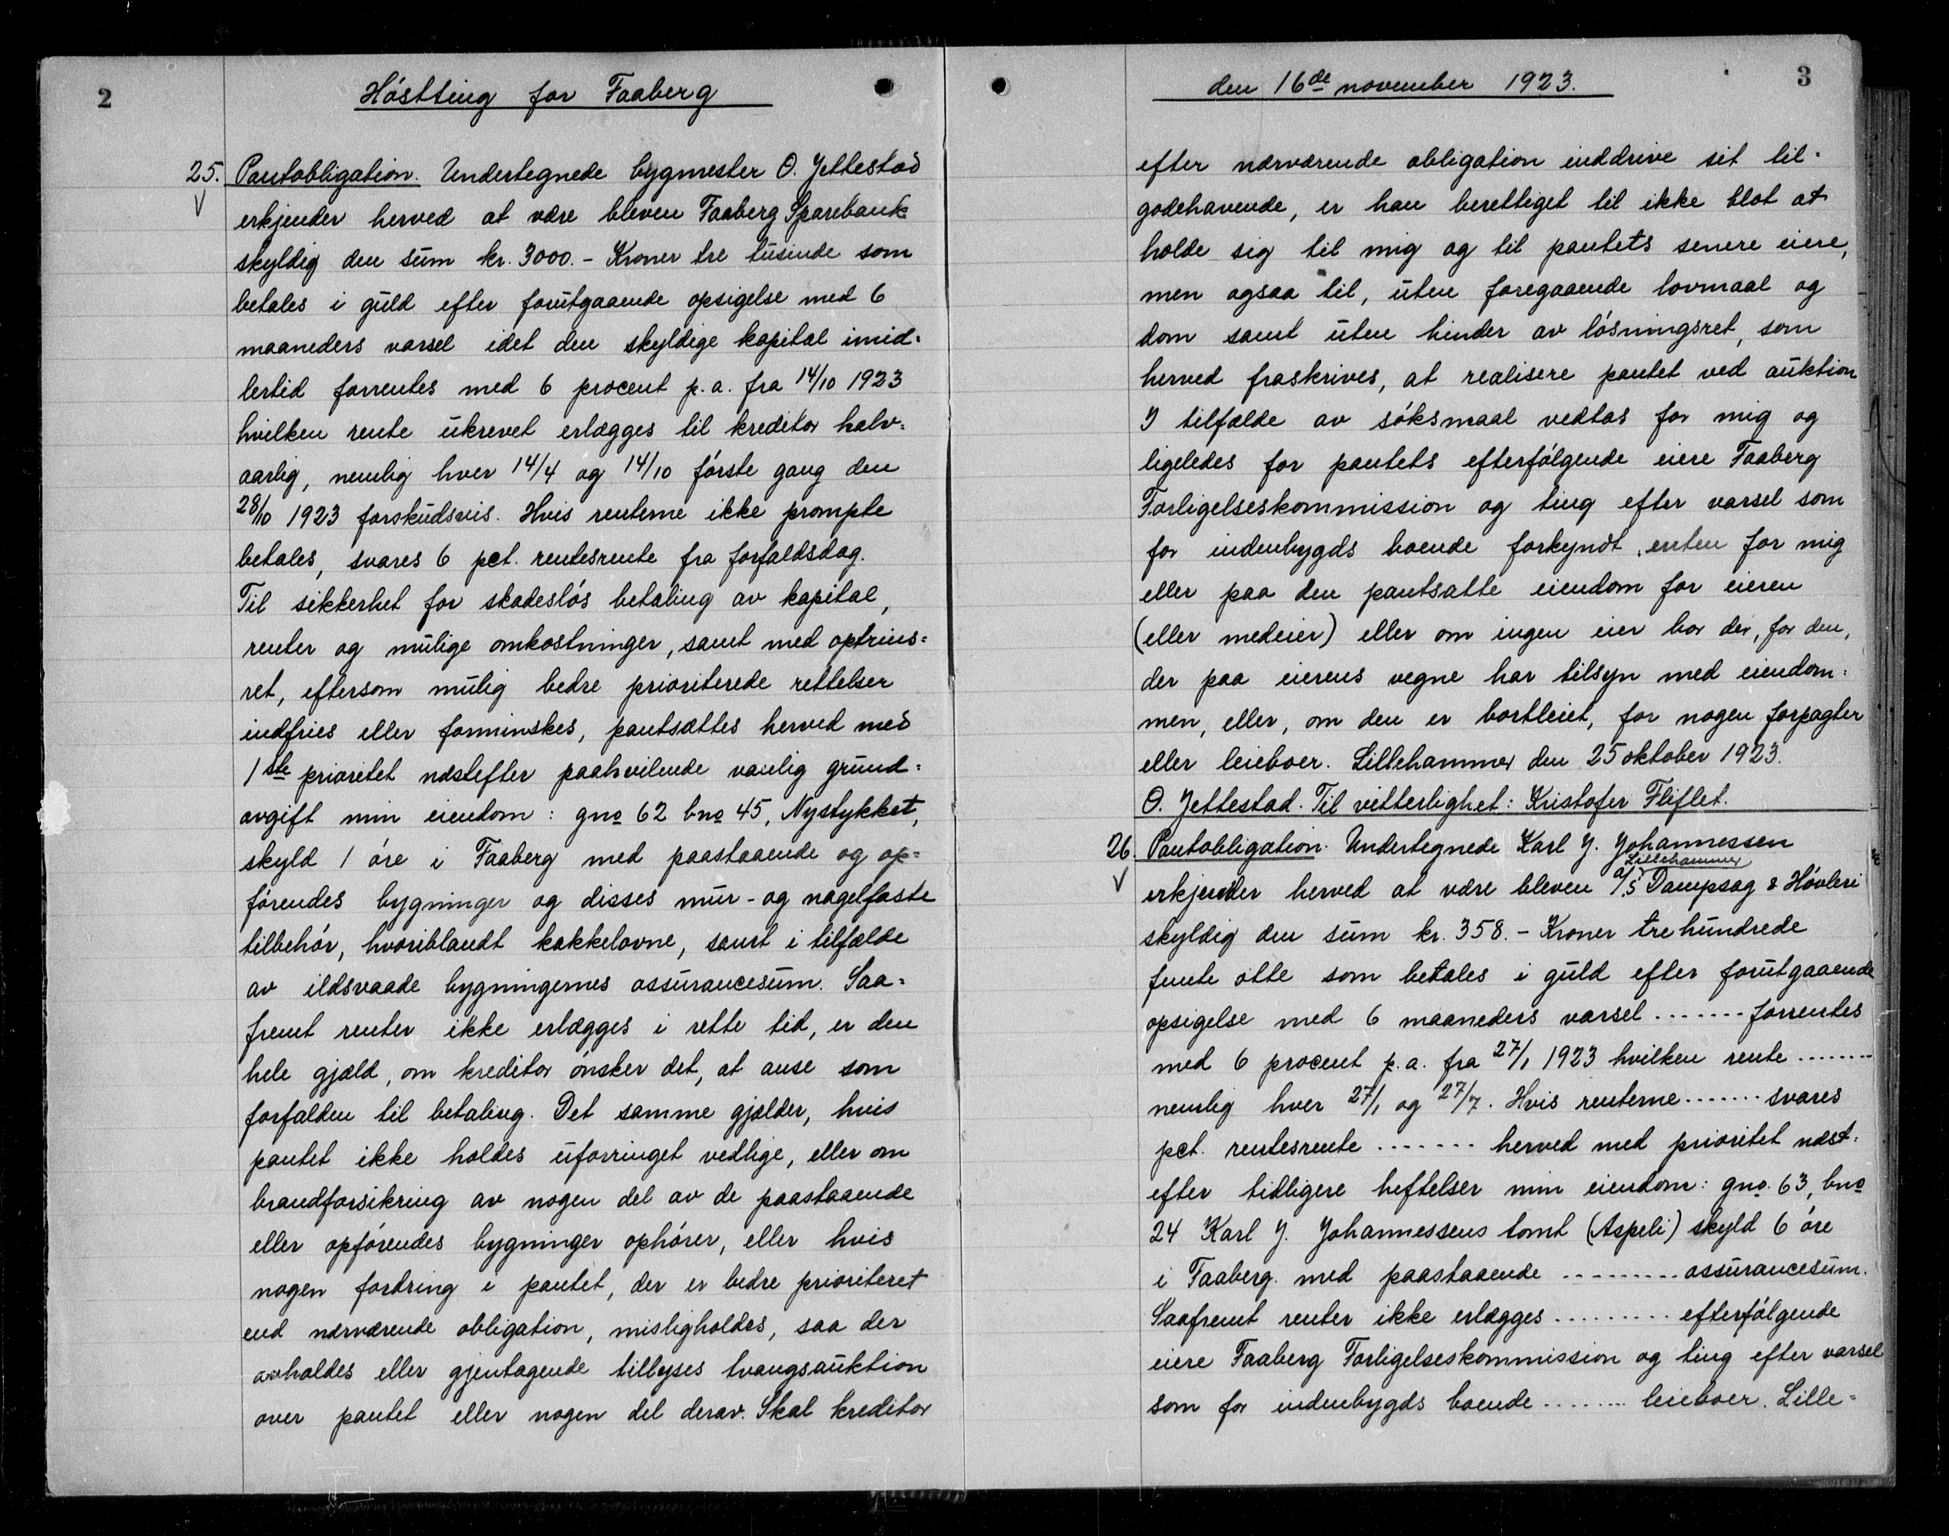 2
Høstting for Faaberg
25. Pantobligation. Undertegnede bygmester O. Jettestad
erkjender herved at være bleven Faaberg Sparebank
skyldig den sum kr. 3000.- Kroner tre tusinde som
betales i guld efter forutgaaende opsigelse med 6
maaneders varsel idet den skyldige kapital imid-
lertid forrentes med 6 procent p.a. fra 14/10 1923
hvilken rente ukrevet erlægges til kreditor halv-
aarlig, nemlig hver 14/4 og 14/10 første gang den
28/10 1923 forskudsvis. Hvis renterne ikke prompte
betales, svares 6 pct. rentesrente fra forfaldsdag.
Til sikkerhet for skadesløs betaling av kapital,
renter og mulige omkostninger, samt med optrins-
ret, eftersom mulig bedre prioriterede rettelser
indfries eller forminskes, pantsættes herved med
1ste prioritet næstefter paahvilende vanlig grund-
avgift min eiendom: gno 62 bno 45, Nystykket,
skyld 1 øre i Faaberg med paastaaende og op-
førendes bygninger og disses mur- og nagelfaste
tilbehør, hvoriblandt kakkelovne, samt i tilfælde
av ildsvaade bygningernes assurancesum. Saa-
fremt renter ikke erlægges i rette tid, er den
hele gjæld, om kreditor ønsker det, at anse som
forfalden til betaling. Det samme gjælder, hvis
pantet ikke holdes uforringet vedlige, eller om
brandforsikring av nogen del av de paastaaende
eller opførendes bygninger ophører, eller hvis
nogen fordring i pantet, der er bedre prioriteret
end nærværende obligation, misligholdes, saa der
avholdes eller gjentagende tillyses tvangsauktion
over pantet eller nogen del derav. Skal kreditor
den 16de november 1923.
3
efter nærværende obligation inddrive sit til-
godehavende, er han berettiget til ikke blot at
holde sig til mig og til pantets senere eiere,
men ogsaa til, uten foregaaende lovmaal og
dom samt uten hinder av løsningsret, som
herved fraskrives, at realisere pantet ved auktion
I tilfælde av søksmaal vedtas for mig og
ligeledes for pantets efterfølgende eiere Faaberg
Forligelseskommission og ting efter varsel som
for indenbygds boende forkyndt enten for mig
eller paa den pantsatte eiendom for eieren
(eller medeier) eller om ingen eier bor der, for den,
der paa eierens vegne har tilsyn med eiendom-
men, eller, om den er bortleiet, for nogen forpagter
eller leieboer. Lillehammer den 25 oktober 1923.
O. Jettestad. Til vitterlighet: Kristofer Fliflet.
26. Pantobligation. Undertegnede Karl J. Johannessen
Lillehammer
erkjender herved at være bleven A/S Dampsag & Høvleri
skyldig den sum kr. 358.- Kroner tre hundrede
femti otte som betales i guld efter forutgaaende
opsigelse med 6 maaneders varsel ....... forrentes
med 6 procent p.a. fra 27/1 1923 hvilken rente ........
nemlig hver 27/1 og 27/7. Hvis renterne ....... svares
pct. rentesrente ....... herved med prioritet næst-
efter tidligere heftelser min eiendom: gno. 63, bno
24 Karl J. Johannessens tomt (Aspeli) skyld 6 øre
i Faaberg. med paastaaende ......... assurancesum.
Saafremt renter ikke erlægges ......... efterfølgende
eiere Faaberg Forligelseskommission og ting efter varsel
som for indenbygds boende ........ leieboer. Lille-